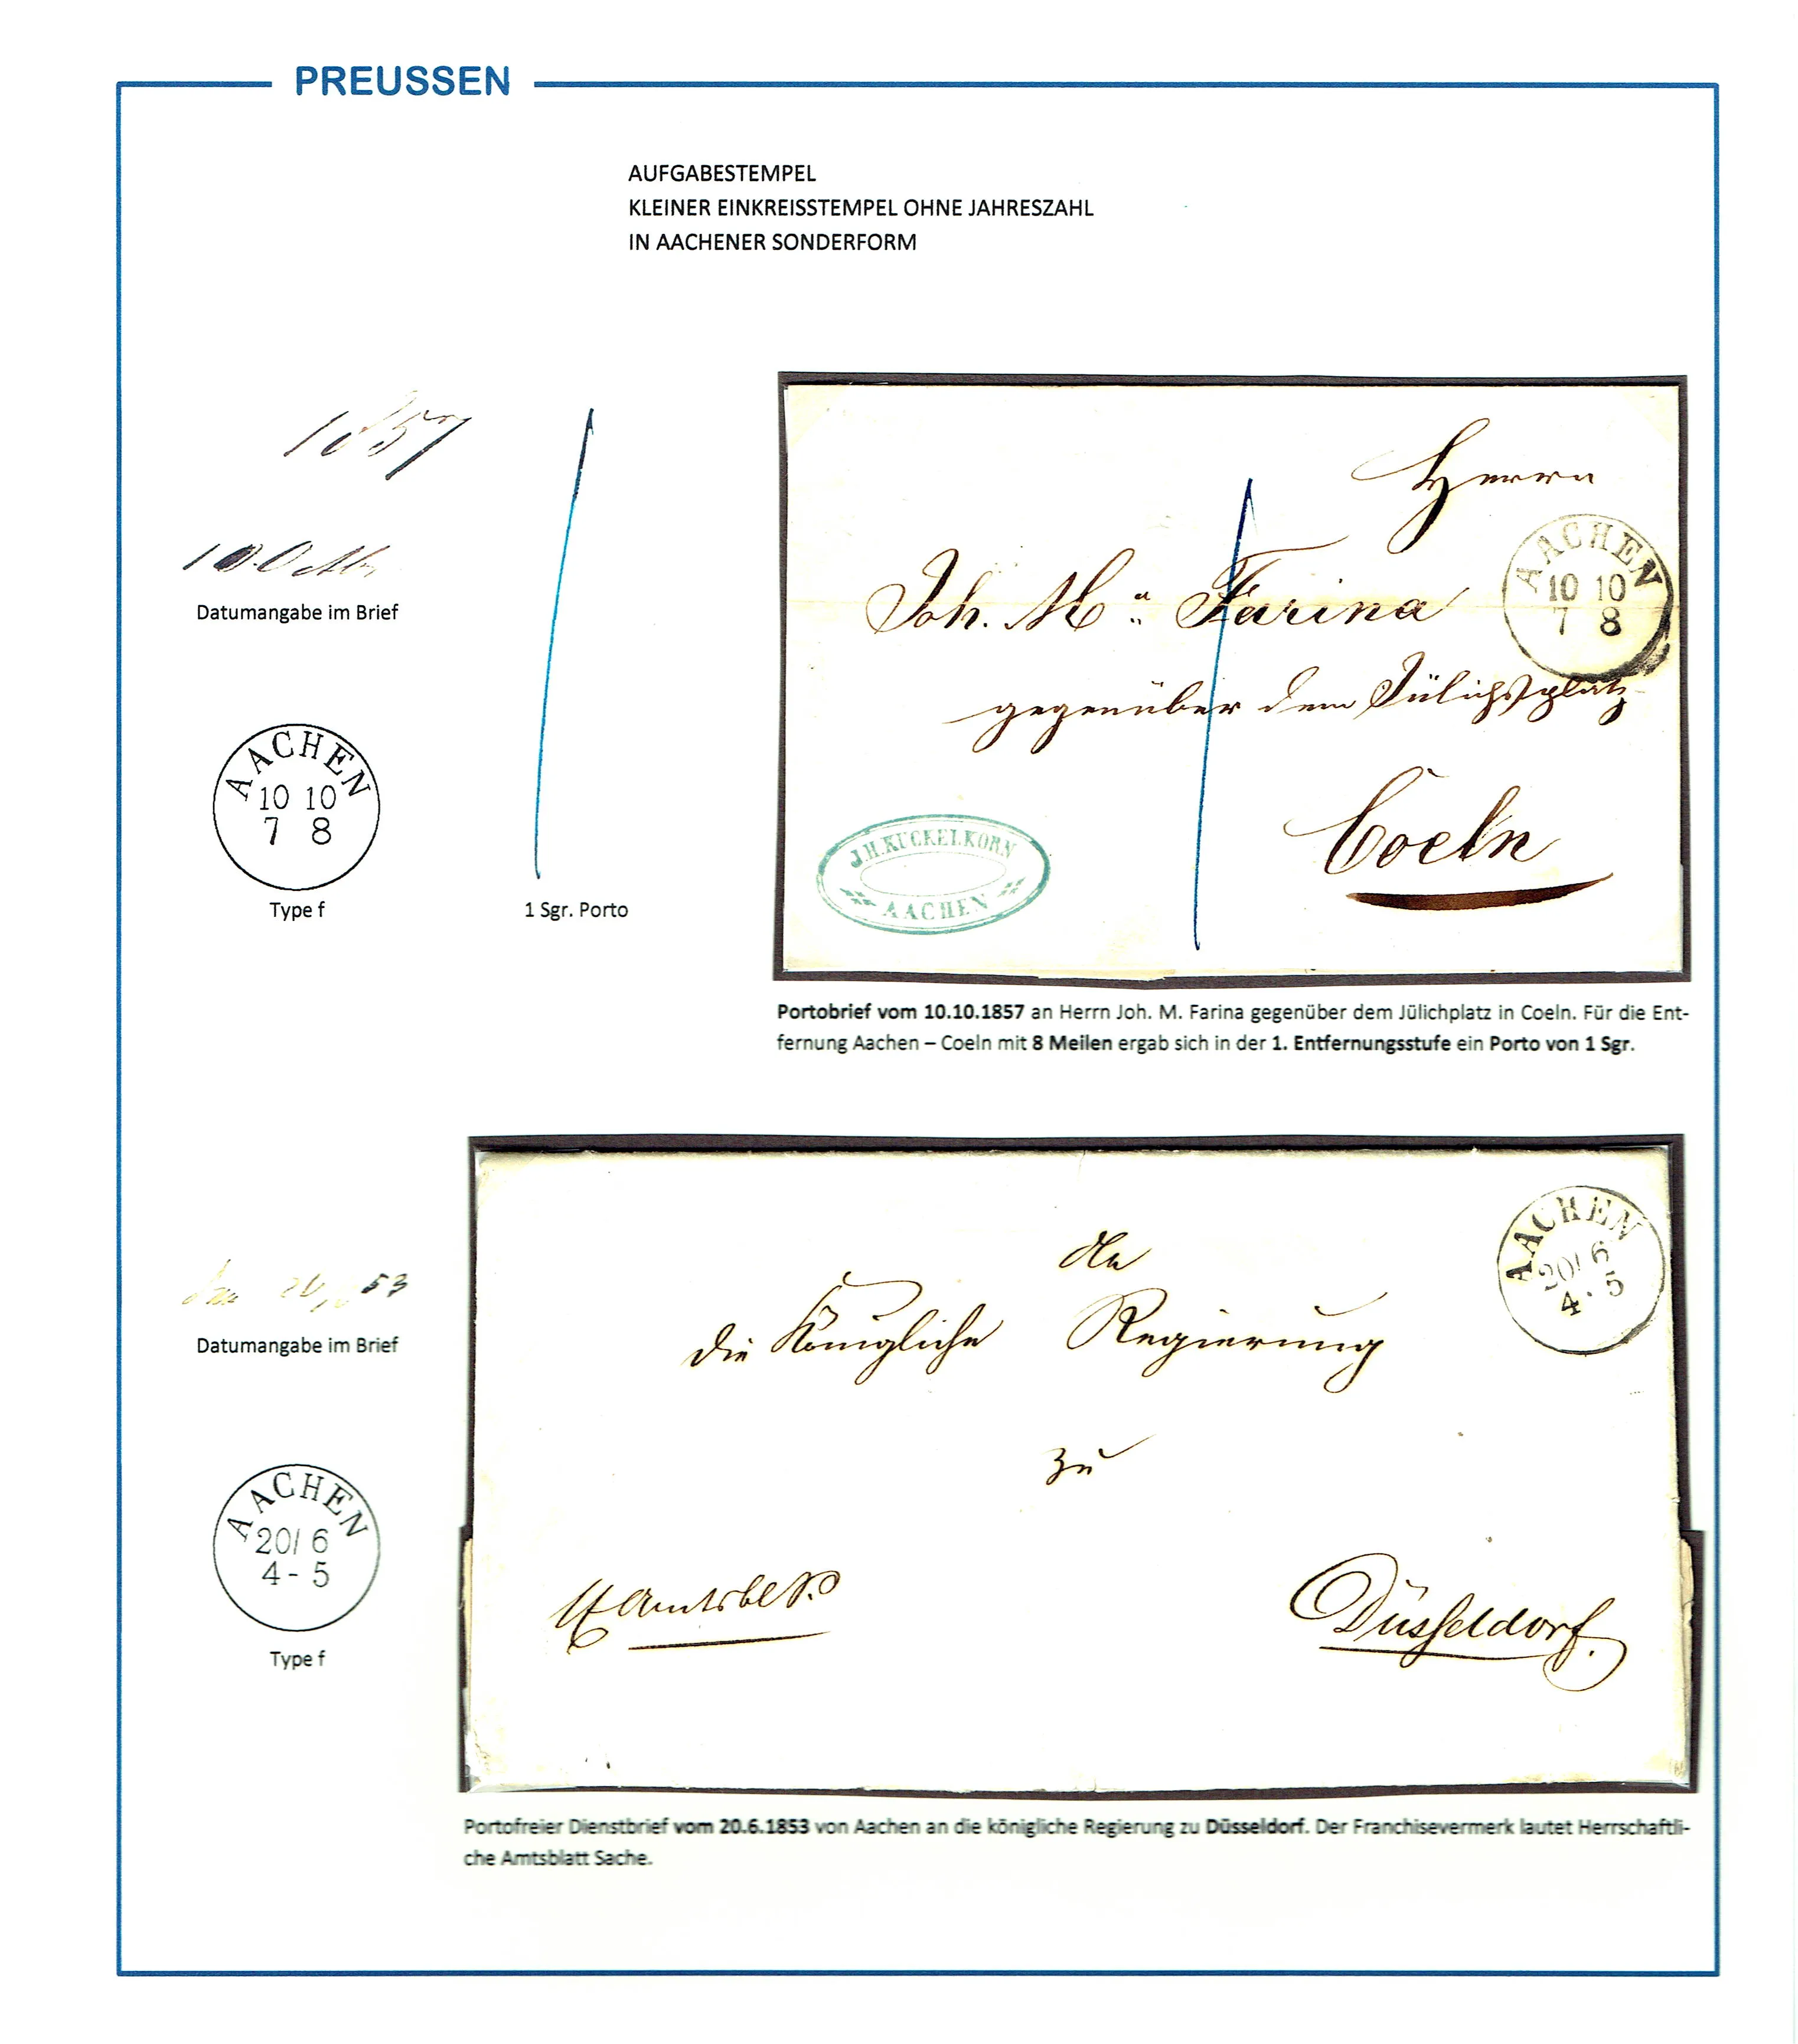 PREUSSEN
AUFGABESTEMPEL
KLEINER EINKREISSTEMPEL OHNE JAHRESZAHL
IN AACHENER SONDERFORM
1857
10 Octbr
Datumangabe im Brief
AACHEN
10 10
7 8
Type f
1
1 Sgr. Porto
Herrn
Joh. Ma Farina
gegenüber dem Jülichsplatz
Coeln
AACHEN
10 10
7 8
1
J.H.KUCKELKORN
AACHEN
Portobrief vom 10.10.1857 an Herrn Joh. M. Farina gegenüber dem Jülichplatz in Coeln. Für die Ent-
fernung Aachen – Coeln mit 8 Meilen ergab sich in der 1. Entfernungsstufe ein Porto von 1 Sgr.
53
Datumangabe im Brief
AACHEN
20/ 6
4 - 5
Type f
AACHEN
20/ 6
4 - 5
An
die Königliche Regierung
zu
Düsseldorf.
Portofreier Dienstbrief vom 20.6.1853 von Aachen an die königliche Regierung zu Düsseldorf. Der Franchisevermerk lautet Herrschaftli-
che Amtsblatt Sache.